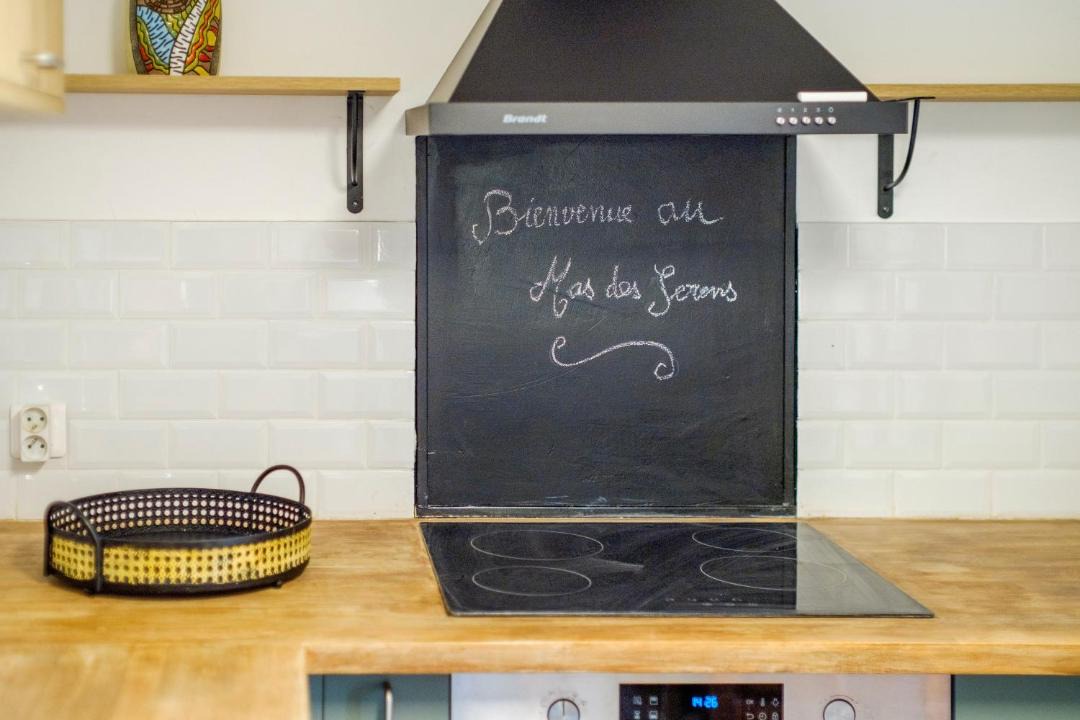 Brandt
Bienvenue au
Mas des Serens
14:26